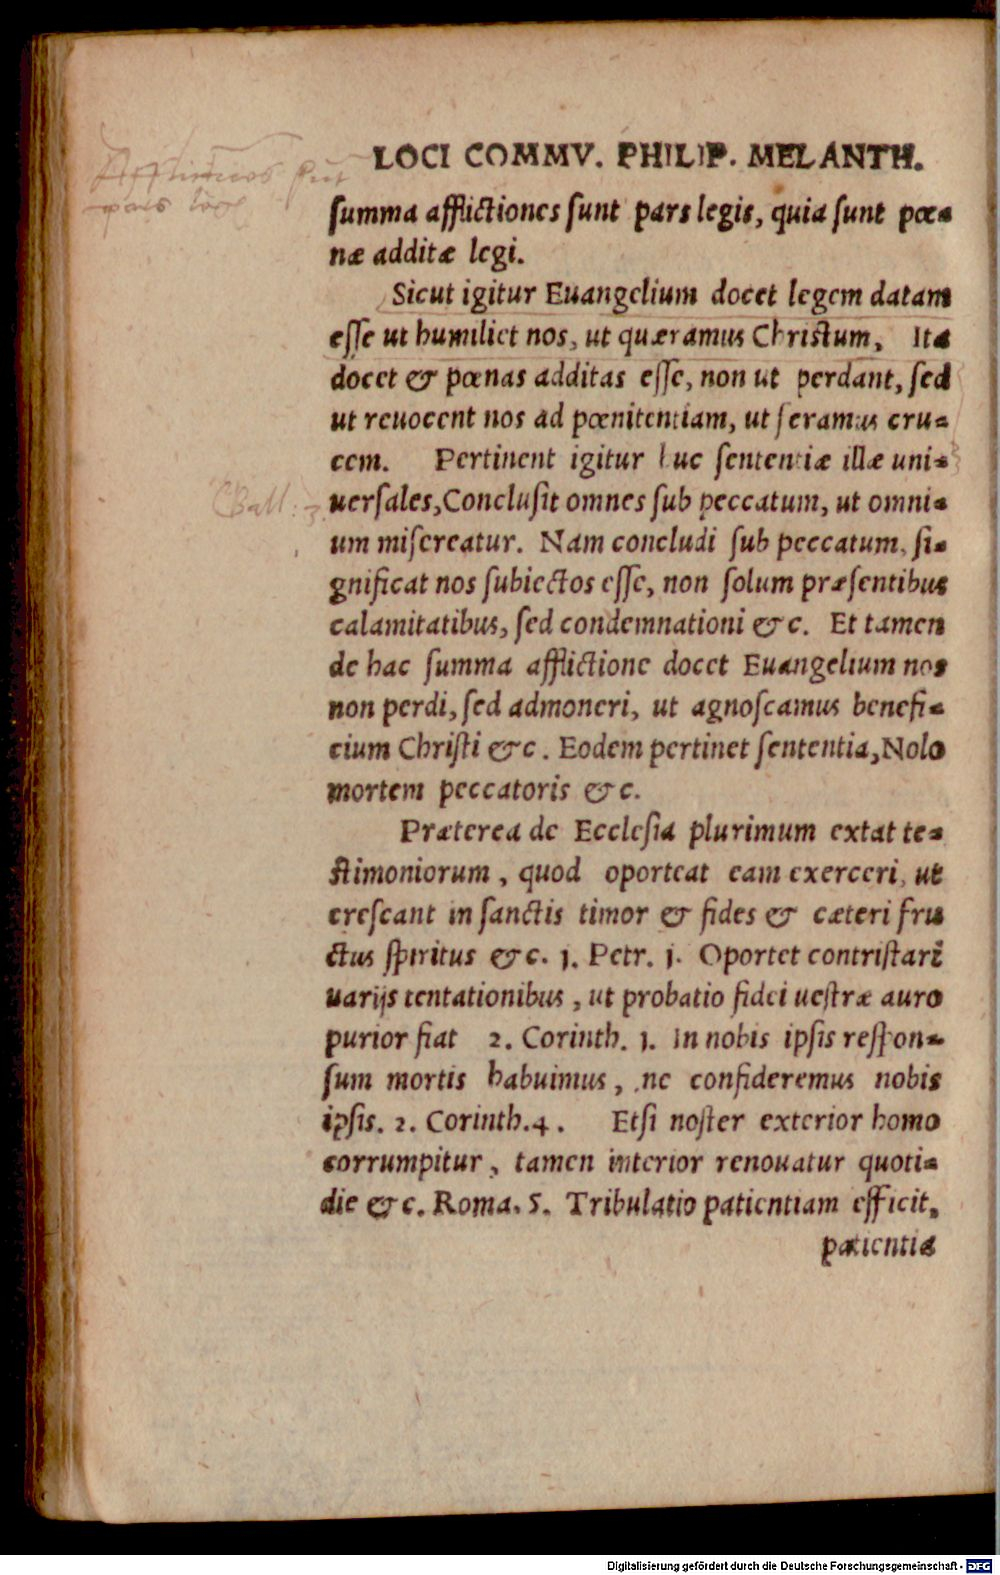 LOCI COMMV. PHILIP. MELANTH.
summa afflictiones sunt pars legis, quia sunt pœ-
næ additæ legi.
Sicut igitur Euangelium docet legem datam
esse ut humiliet nos, ut quæramus Christum, Ita
docet & pœnas additas esse, non ut perdant, sed
ut reuocent nos ad pœnitentiam, ut feramus cru-
cem. Pertinent igitur huc sententiæ illæ uni-
Gall: 3.
uersales, Conclusit omnes sub peccatum, ut omni-
um misereatur. Nam concludi sub peccatum, si-
gnificat nos subiectos esse, non solum præsentibus
calamitatibus, sed condemnationi &c. Et tamen
de hac summa afflictione docet Euangelium nos
non perdi, sed admoneri, ut agnoscamus benefi-
cium Christi &c. Eodem pertinet sententia, Nolo
mortem peccatoris &c.
Præterea de Ecclesia plurimum extat te-
stimoniorum, quod oporteat eam exerceri, ut
crescant in sanctis timor & fides & cæteri fru
ctus spiritus &c. 1. Petr. 1. Oportet contristari
uarijs tentationibus, ut probatio fidei uestræ auro
purior fiat 2. Corinth. 1. In nobis ipsis respon-
sum mortis habuimus, ne confideremus nobis
ipsis. 2. Corinth. 4. Etsi noster exterior homo
corrumpitur, tamen interior renouatur quoti-
die &c. Roma. 5. Tribulatio patientiam efficit,
patientia
Digitalisierung gefördert durch die Deutsche Forschungsgemeinschaft - DFG